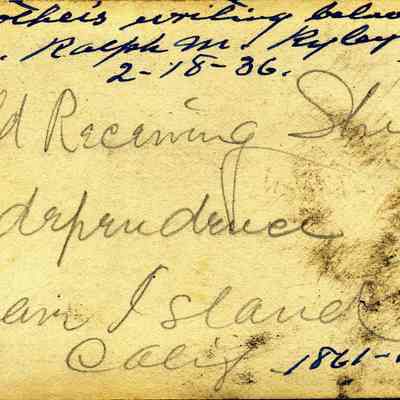 other's writing below
. Ralph M. Ryley
2-18-36.
ld Receiving Shi
dependence
are Island
Calif 1861-